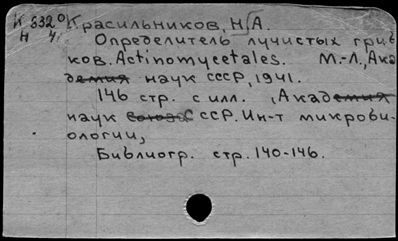 К 532⁰ Красильников, Н. А.
Н 41 Определитель лучистых гриб
ков. Actinomycetales. М.-Л., Акад
демия наук СССР, 1941.
146 стр. с илл. , Академия
наук Союза ССР. Ин-т микроби-
ологии,
Библиогр. стр. 140-146.